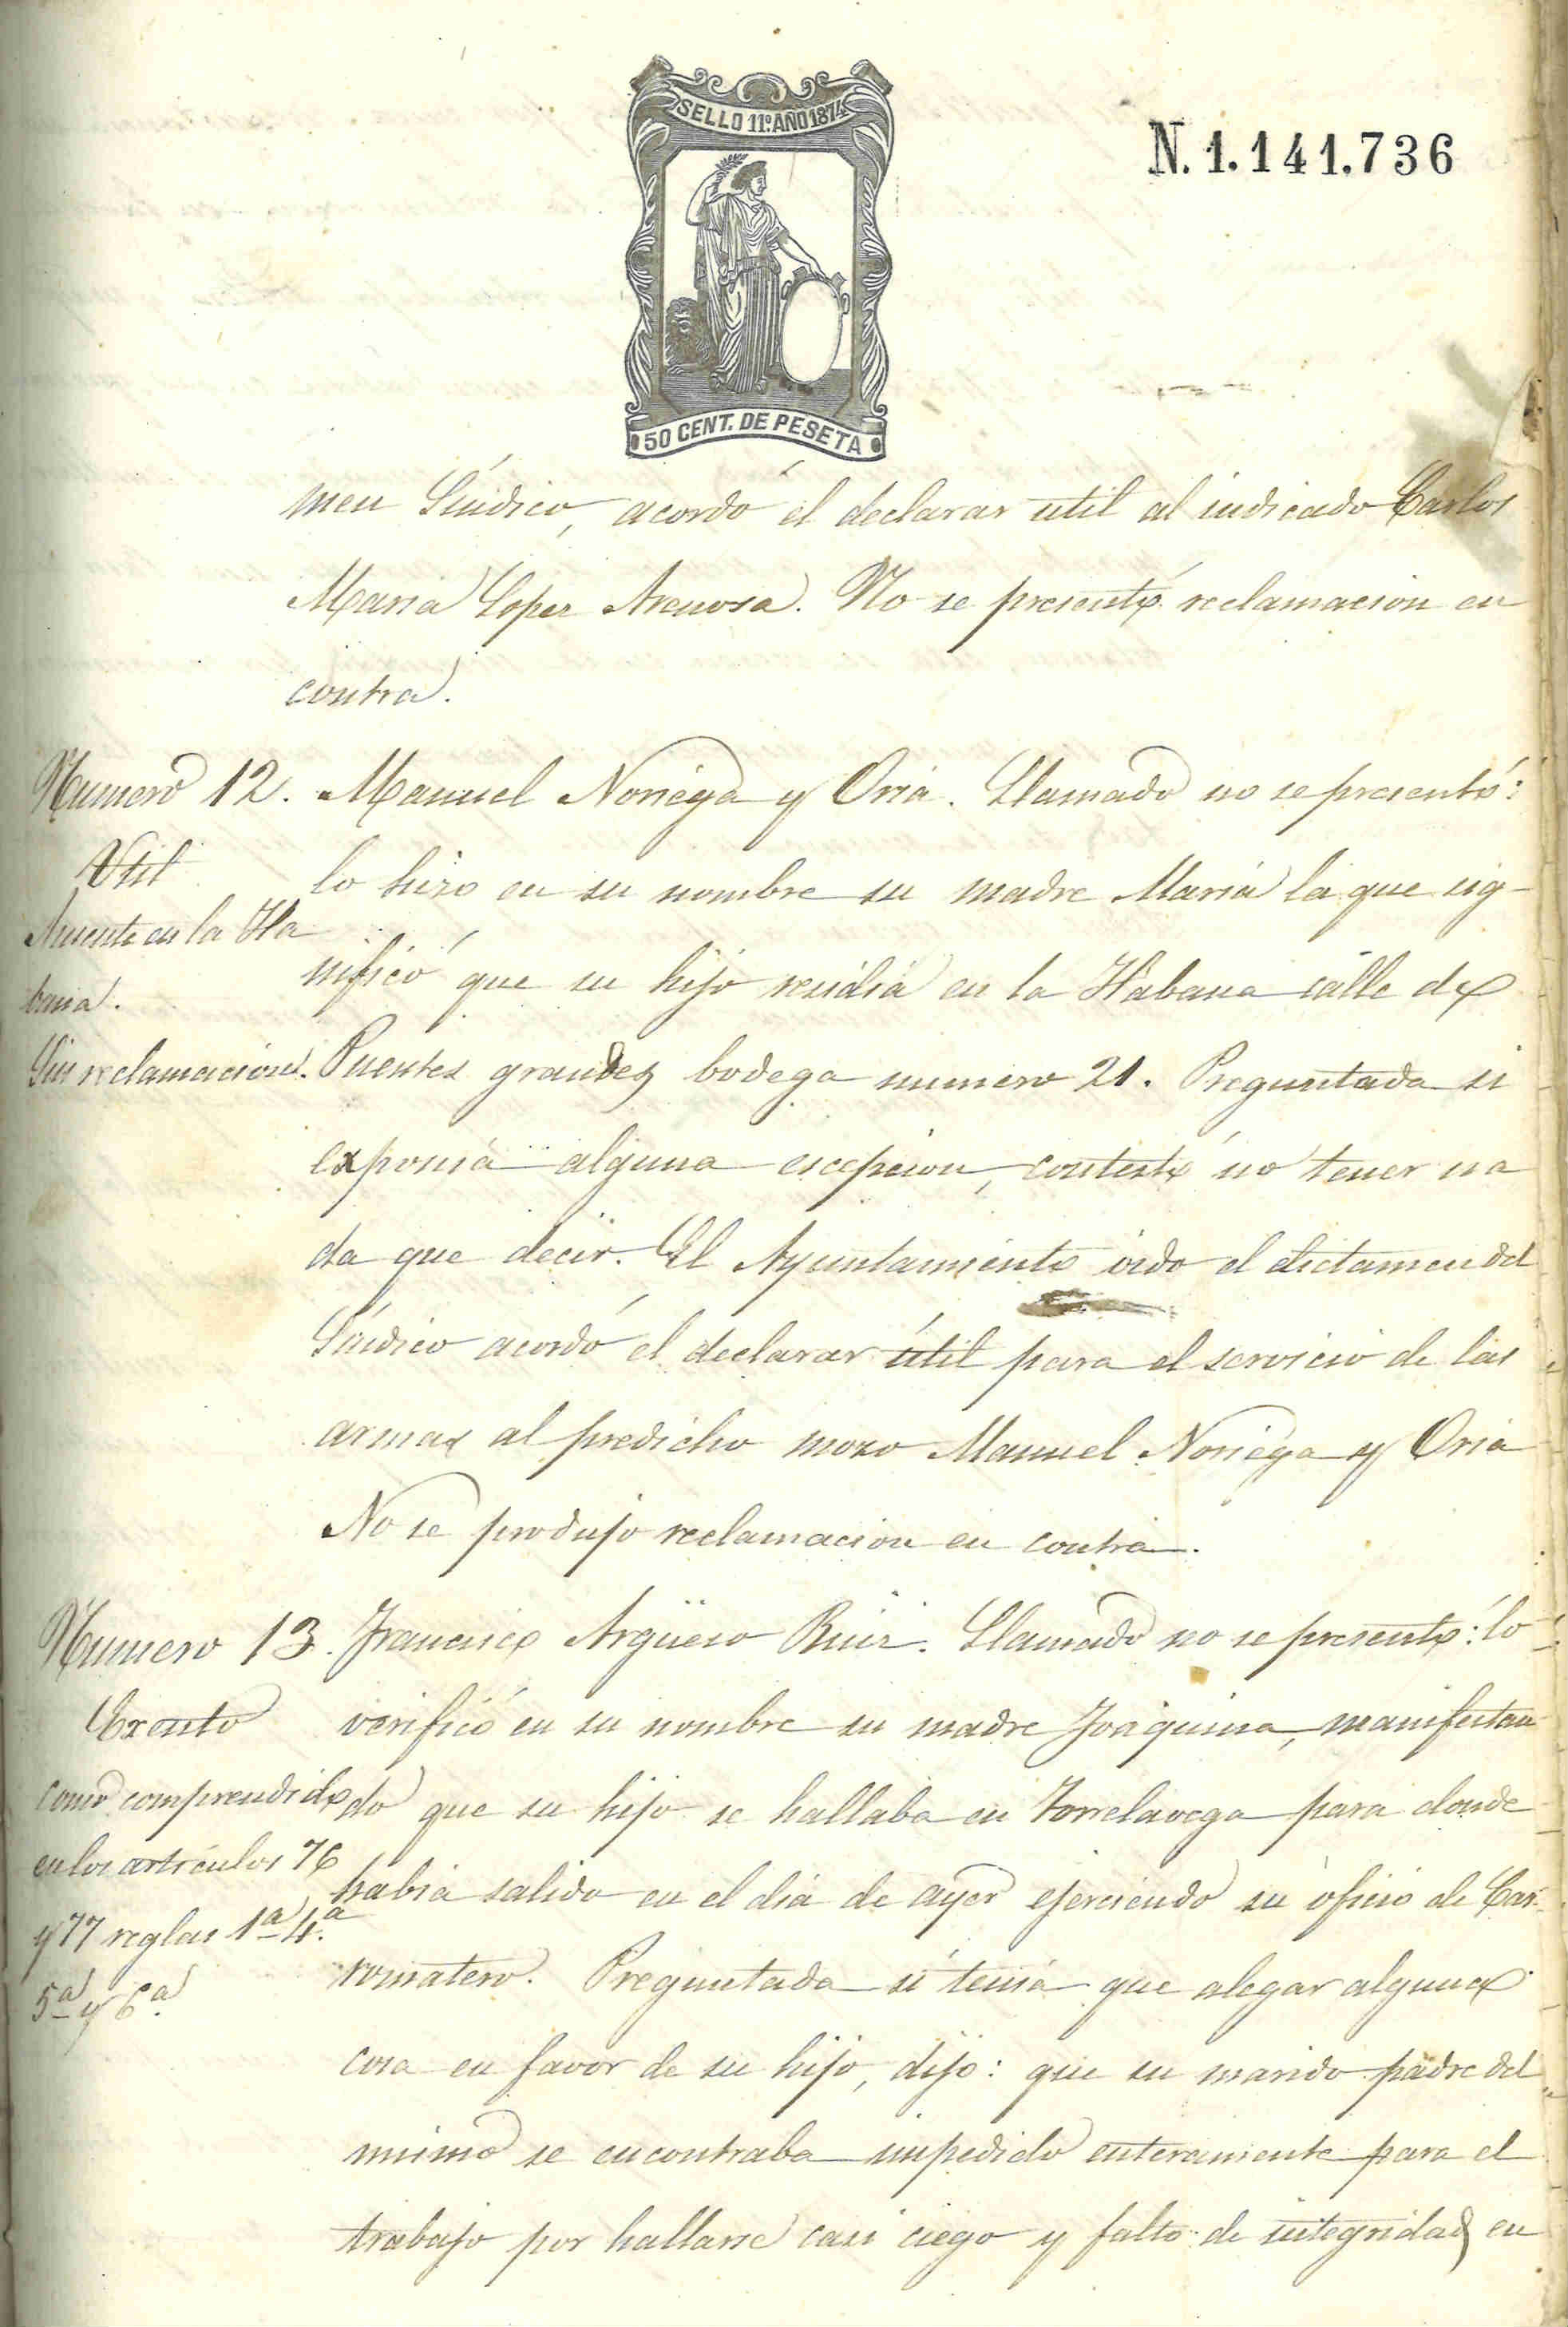 SELLO 11º AÑO 1874
N. 1.141.736
50 CENT. DE PESETA
men Síndico, acordó el declarar util al indicado Carlos
Maria Lopez Arenosa. No se presentó reclamacion en
contra.
Numero 12. Manuel Noriega y Oria. Llamado no se presentó:
Util
lo hizo en su nombre su madre Maria la que sig-
Ausente en la Ha
nificó que su hijo residia en la Habana calle de
bana.
Sin reclamacion. Puentes grandes bodega numero 21. Preguntada si
exponia alguna escepcion, contestó no tener na
da que decir. El Ayuntamiento oido el dictamen del
Síndico acordó el declarar útil para el servicio de las
armas al predicho mozo Manuel Noriega y Oria
No se produjo reclamacion en contra.
Numero 13. Francisco Argüeso Ruiz. Llamado no se presentó: lo
Exento
verificó en su nombre su madre Joaquina, manifestan
como comprendido
do que su hijo se hallaba en Torrelavega para donde
en los artículos 76
habia salido en el dia de ayer ejerciendo su oficio de Car-
y 77 reglas 1ª 4ª
romatero. Preguntada si tenia que alegar alguna
5ª y 6ª
cosa en favor de su hijo, dijo: que su marido padre del
mismo se encontraba impedido enteramente para el
trabajo por hallarse casi ciego y falto de integridad en